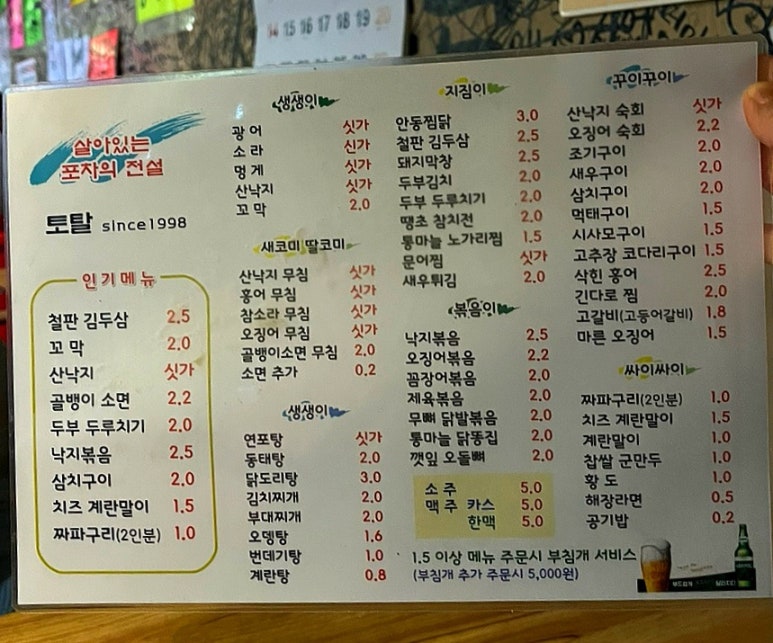 14 15 16 17 18 19 20
살아있는
포차의 전설
토탈 since1998
인기메뉴
철판 김두삼 2.5
꼬 막 2.0
산낙지 싯가
골뱅이 소면 2.2
두부 두루치기 2.0
낙지볶음 2.5
삼치구이 2.0
치즈 계란말이 1.5
짜파구리(2인분) 1.0
생생이
광 어 싯가
소 라 신가
멍 게 싯가
산낙지 싯가
꼬 막 2.0
새코미 딸코미
산낙지 무침 싯가
홍어 무침 싯가
참소라 무침 싯가
오징어 무침 싯가
골뱅이소면 무침 2.0
소면 추가 0.2
생생이
연포탕 싯가
동태탕 2.0
닭도리탕 3.0
김치찌개 2.0
부대찌개 2.0
오뎅탕 1.6
번데기탕 1.0
계란탕 0.8
지짐이
안동찜닭 3.0
철판 김두삼 2.5
돼지막창 2.5
두부김치 2.0
두부 두루치기 2.0
땡초 참치전 2.0
통마늘 노가리찜 1.5
문어찜 싯가
새우튀김 2.0
볶음이
낙지볶음 2.5
오징어볶음 2.2
꼼장어볶음 2.0
제육볶음 2.0
무뼈 닭발볶음 2.0
통마늘 닭똥집 2.0
깻잎 오돌뼈 2.0
소 주 5.0
맥 주 카스 5.0
한맥 5.0
1.5 이상 메뉴 주문시 부침개 서비스
(부침개 추가 주문시 5,000원)
꾸이꾸이
산낙지 숙회 싯가
오징어 숙회 2.2
조기구이 2.0
새우구이 2.0
삼치구이 2.0
먹태구이 1.5
시사모구이 1.5
고추장 코다리구이 1.5
삭힌 홍어 2.5
긴다로 찜 2.0
고갈비(고등어갈비) 1.8
마른 오징어 1.5
싸이싸이
짜파구리(2인분) 1.0
치즈 계란말이 1.5
계란말이 1.0
찹쌀 군만두 1.0
황 도 1.0
해장라면 0.5
공기밥 0.2